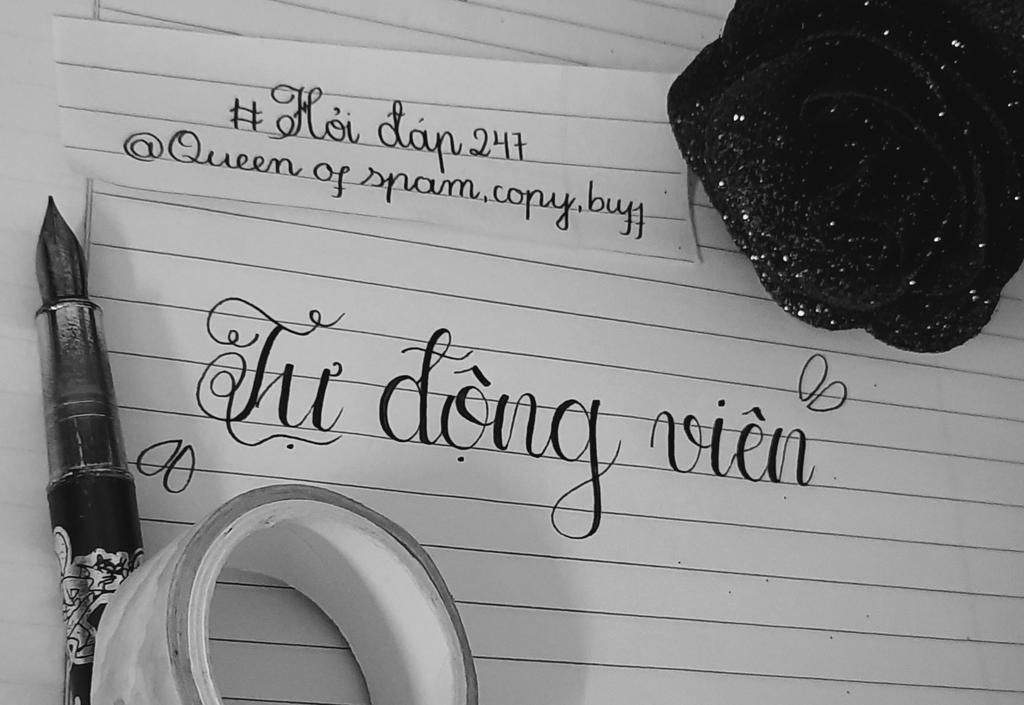 # Hỏi đáp 247
@Queen of spam, copy, buff
Tự động viên